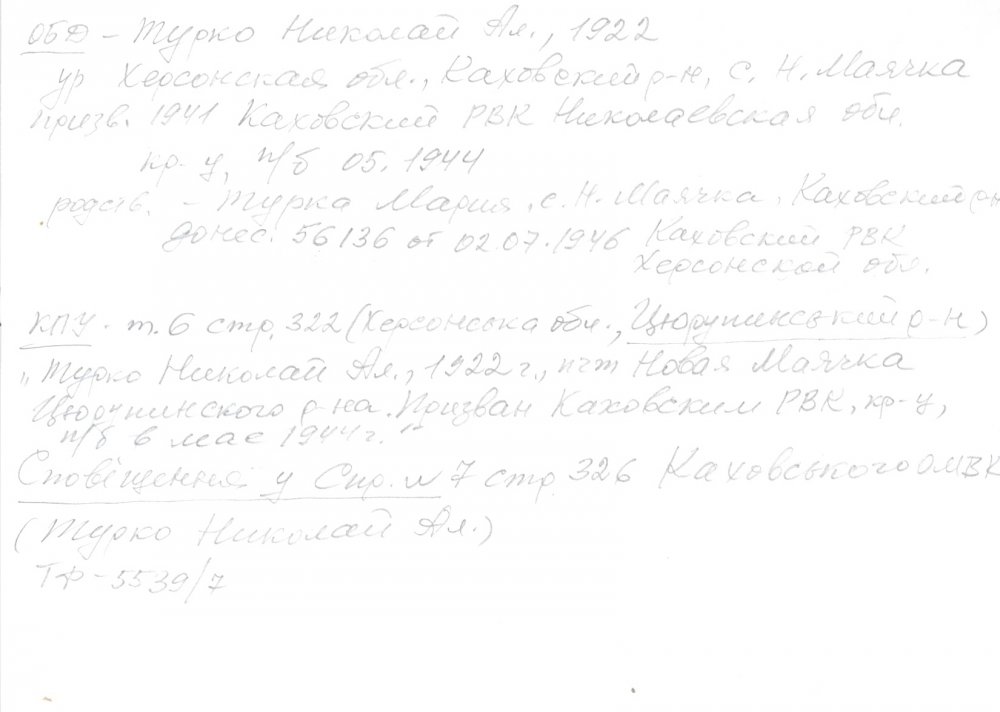 ОБД – Турко Николай Ал., 1922
ур Херсонская обл., Каховский р-н, с. Н. Маячка
призв. 1941 Каховский РВК Николаевская обл.
кр-ц, п/б 05.1944
родств. – Турка Мария, с. Н. Маячка, Каховский р-н
донес. 56136 от 02.07.1946 Каховский РВК
Херсонской обл.
КПУ - т. 6 стр. 322 (Херсонська обл., Цюрупинський р-н)
„Турко Николай Ал., 1922 г., пгт Новая Маячка
Цюрупинского р-на. Призван Каховским РВК, кр-ц,
п/б в мае 1944г."
Сповіщення у Спр. № 7 стр. 326 Каховського ОМВК
(Турко Николай Ал.)
ТФ-5539/7